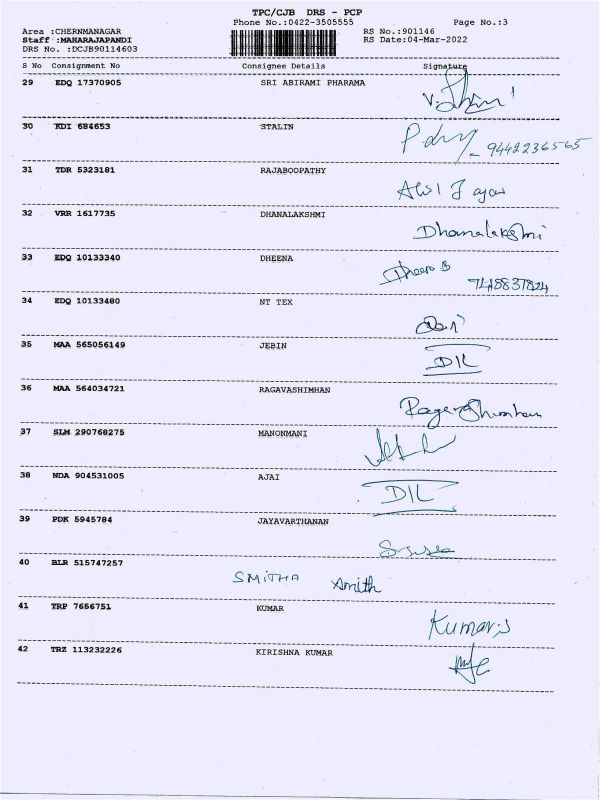 TPC/CJB DRS - PCP
Phone No.:0422-3505555 Page No.:3
Area :CHERNMANAGAR RS No.:901146
Staff :MAHARAJAPANDI RS Date:04-Mar-2022
DRS No. :DCJB90114603
S No Consignment No Consignee Details Signature
29 EDQ 17370905 SRI ABIRAMI PHARAMA
30 KDI 684653 STALIN
9442236565
31 TDR 5323181 RAJABOOPATHY
32 VRR 1617735 DHANALAKSHMI
Dhanalakshmi
33 EDQ 10133340 DHEENA
34 EDQ 10133480 NT TEX
35 MAA 565056149 JEBIN
DIL
36 MAA 564034721 RAGAVASHIMHAN
37 SLM 290768275 MANONMANI
38 NDA 904531005 AJAI
DIL
39 PDK 5945784 JAYAVARTHANAN
40 BLR 515747257
SMITHA Smith
41 TRP 7656751 KUMAR
Kumar.s
42 TRZ 113232226 KIRISHNA KUMAR